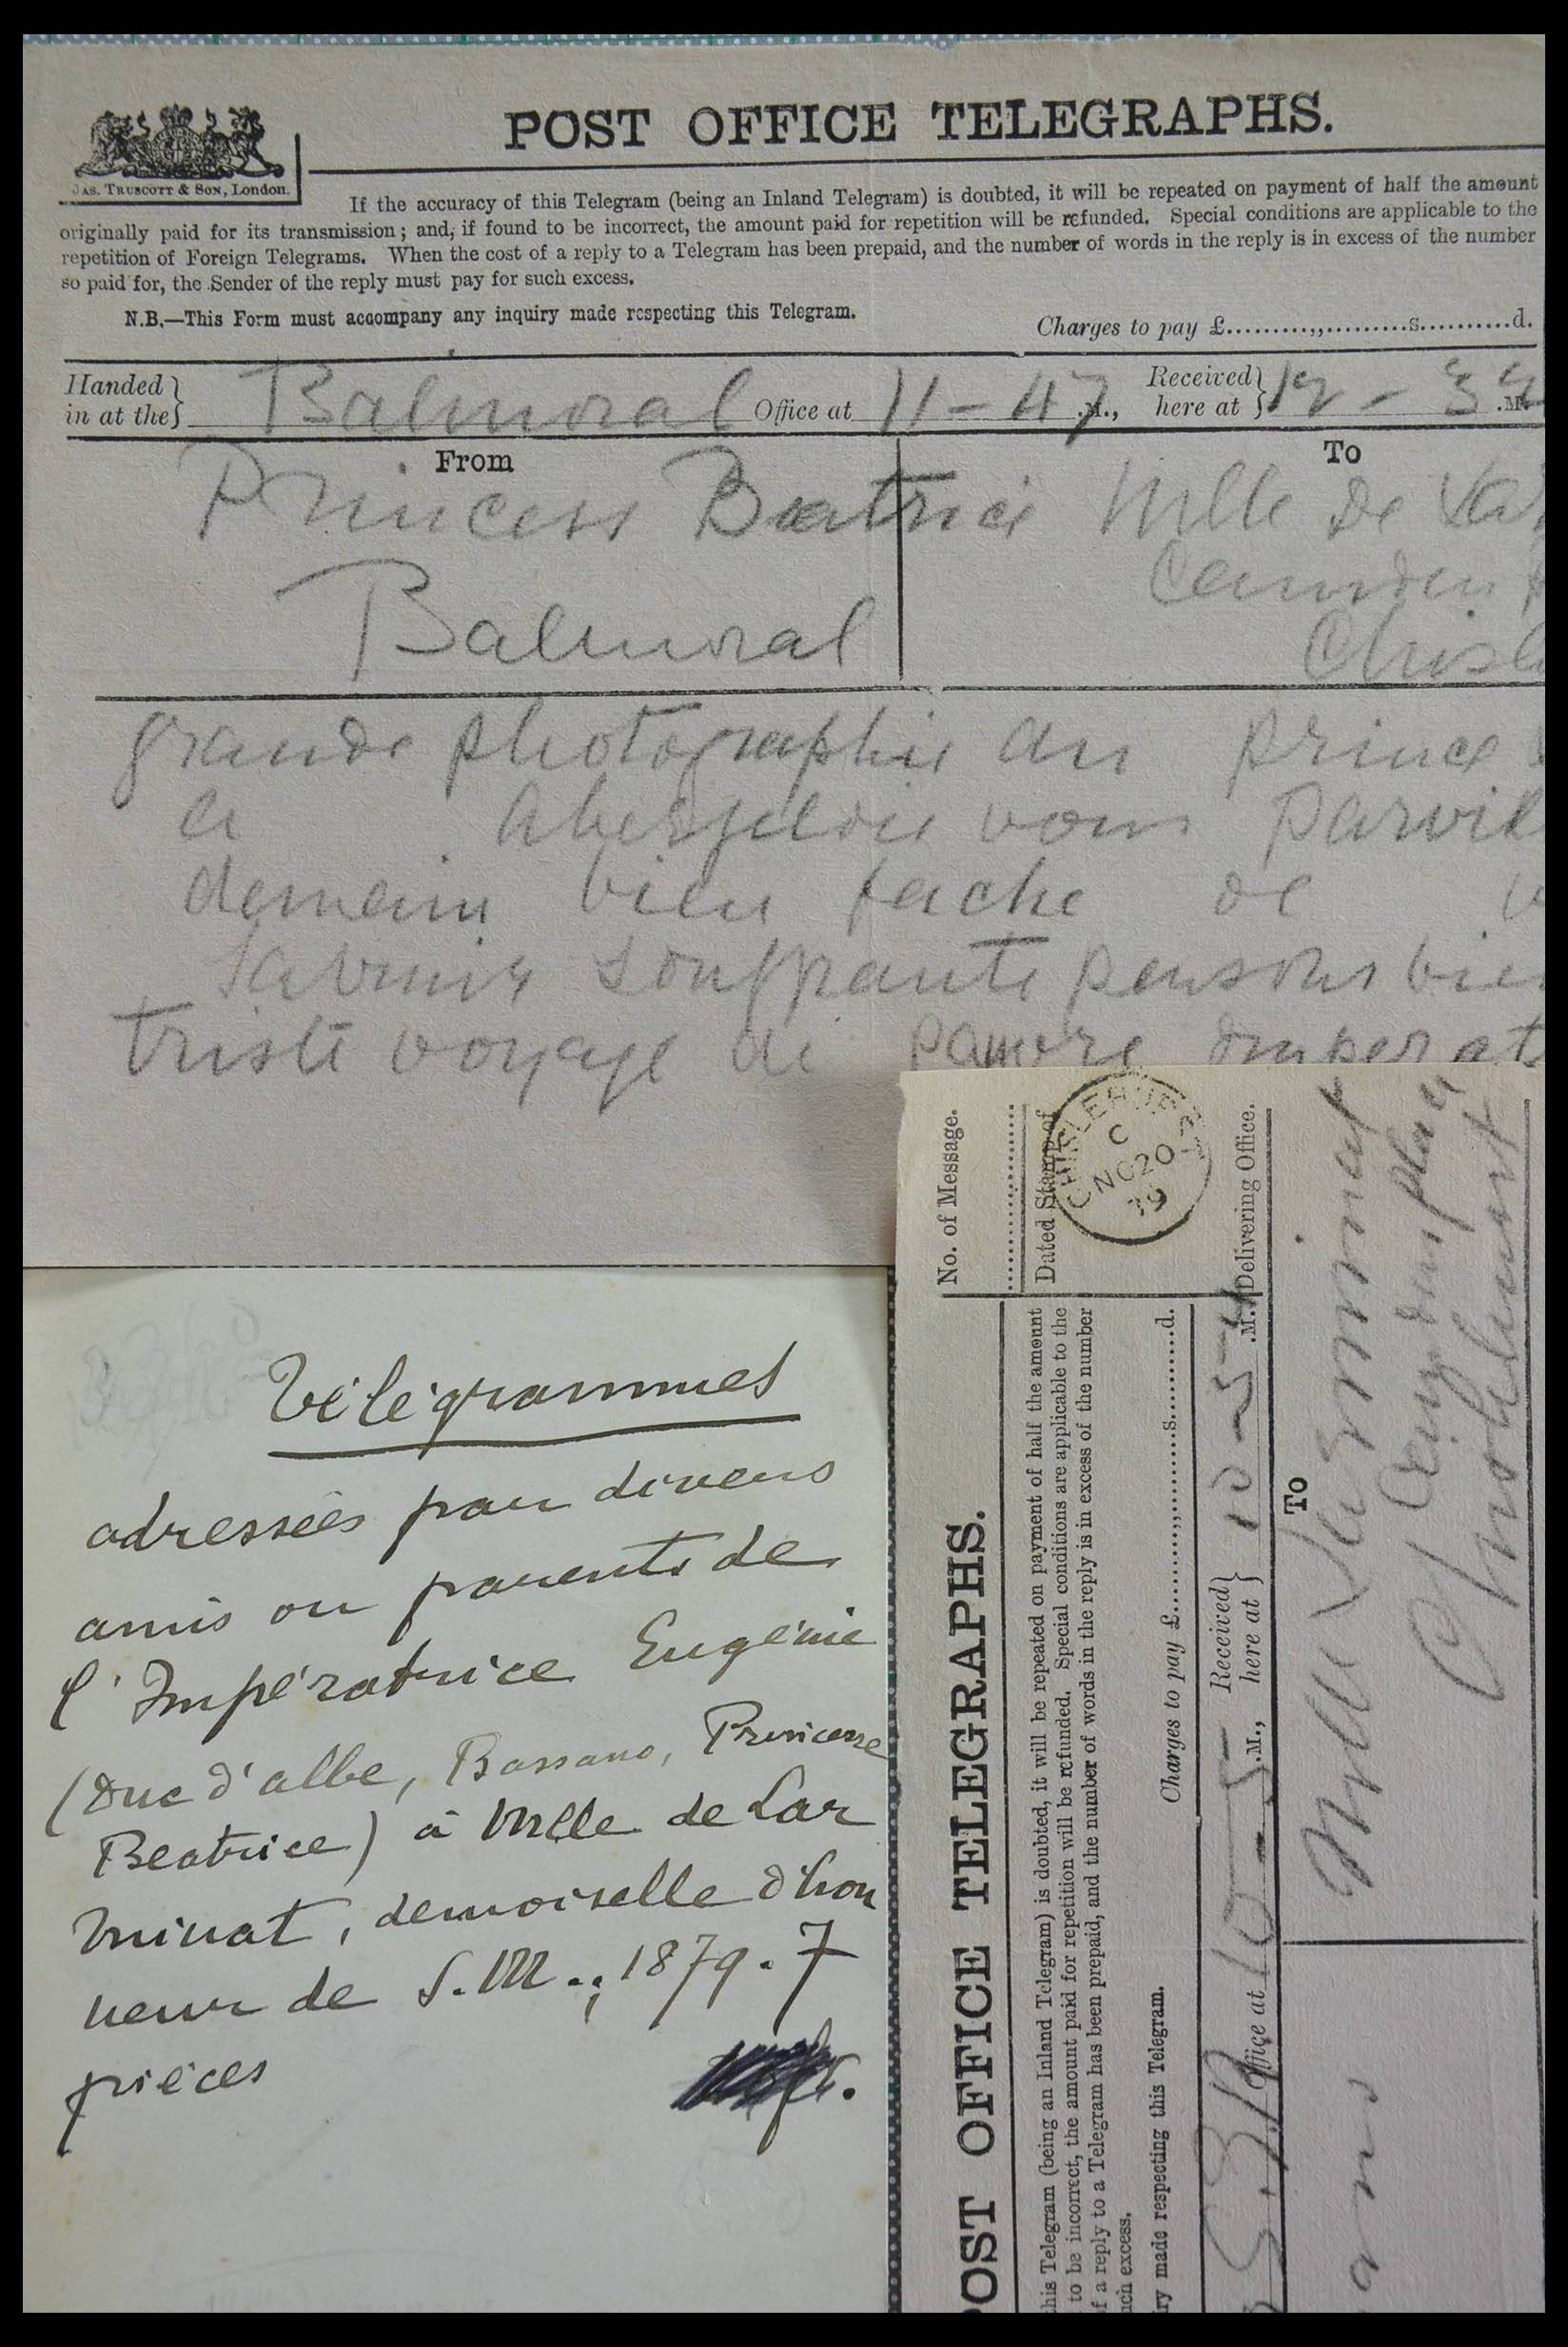 POST OFFICE TELEGRAPHS.
JAS. TRUSCOTT & SON, London.
If the accuracy of this Telegram (being an Inland Telegram) is doubted, it will be repeated on payment of half the amount
originally paid for its transmission; and, if found to be incorrect, the amount paid for repetition will be refunded. Special conditions are applicable to the
repetition of Foreign Telegrams. When the cost of a reply to a Telegram has been prepaid, and the number of words in the reply is in excess of the number
so paid for, the Sender of the reply must pay for such excess.
N.B.—This Form must accompany any inquiry made respecting this Telegram.
Charges to pay £..........,,..........s..........d.
Handed in at the } Balmoral Office at 11-47 .M., Received here at } 12-32 .M.
From
To
Princess Beatrice
Mlle de
Balmoral
Camden
Chisl
grande photographie du prince
a vous
demain bien fache de
souffrante pensons bien
triste voyage de pauvre imperat
Télégrammes
adressées par divers
amis ou parents de
l'Impératrice Eugénie
(Duc d'albe, Bassano, Princesse
Beatrice) à Mlle de Lar
minat, demoiselle d'hon
neur de S.M.; 1879. 7
pièces
fr.
No. of Message.
Dated Stamp of
Delivering Office.
CHISLEHURST
C
NO 20
79
POST OFFICE TELEGRAPHS.
this Telegram (being an Inland Telegram) is doubted, it will be repeated on payment of half the amount
to be incorrect, the amount paid for repetition will be refunded. Special conditions are applicable to the
f a reply to a Telegram has been prepaid, and the number of words in the reply is in excess of the number
uch excess.
iry made respecting this Telegram.
Charges to pay £..........,,..........s..........d.
Office at 10-5 .M., Received here at } 10-54 .M.
To
Mlle de
Camden place
Chislehurst